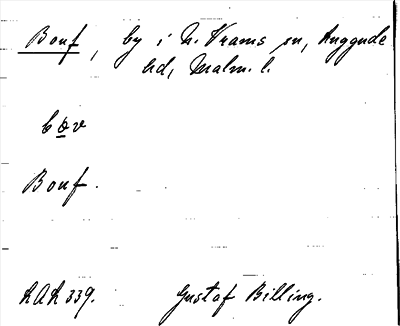 Bouf, by i N. Vrams sn, Luggude
hd, Malm. l.
bov
Bouf.
RAÄ 339. Gustaf Billing.